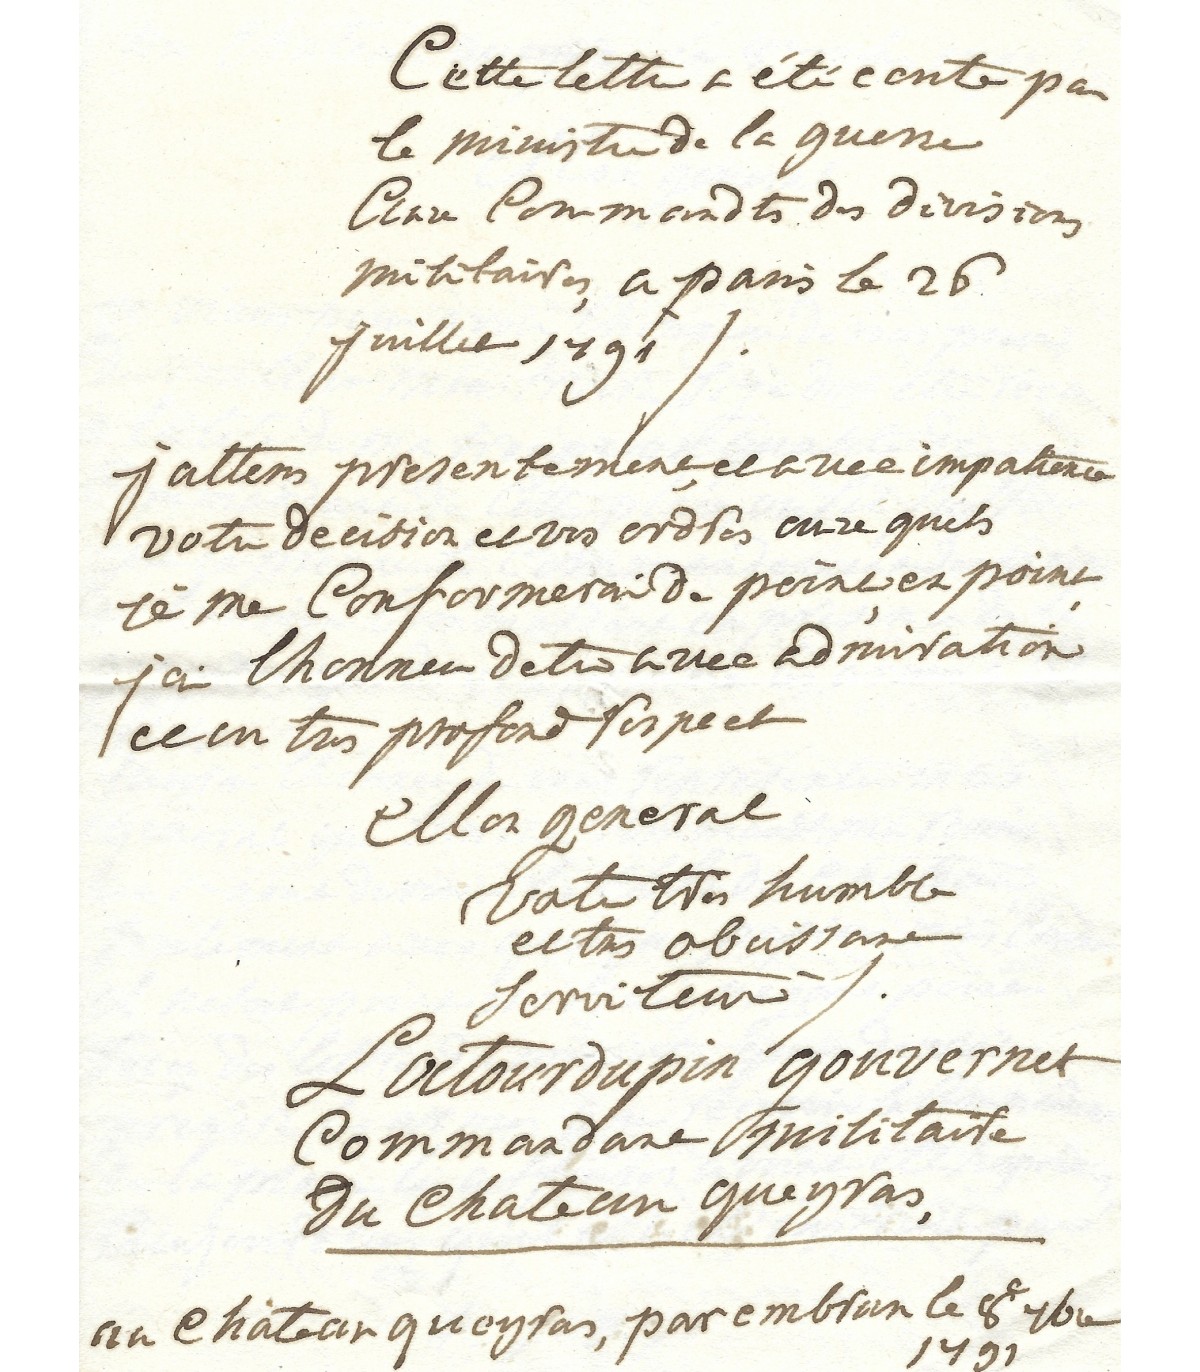 Cette lettre a été ecritte par
le ministre de la guerre
aux Commandts des divisions
militaires, a paris le 26
juillet 1791 /.
j attens presentement, et avec impatience
votre decision et vos ordres auxe quels
je me Conformerai de point, en point,
j ai lhonneur detre avec admiration
et un tres profond respect
Mon general
votre tres humble
et tres obeissant
serviteur /.
Latourdupin gouvernet
Commandant militaire
du chateau queyras,
au chateau queyras, par embrun le 8e 7bre
1791